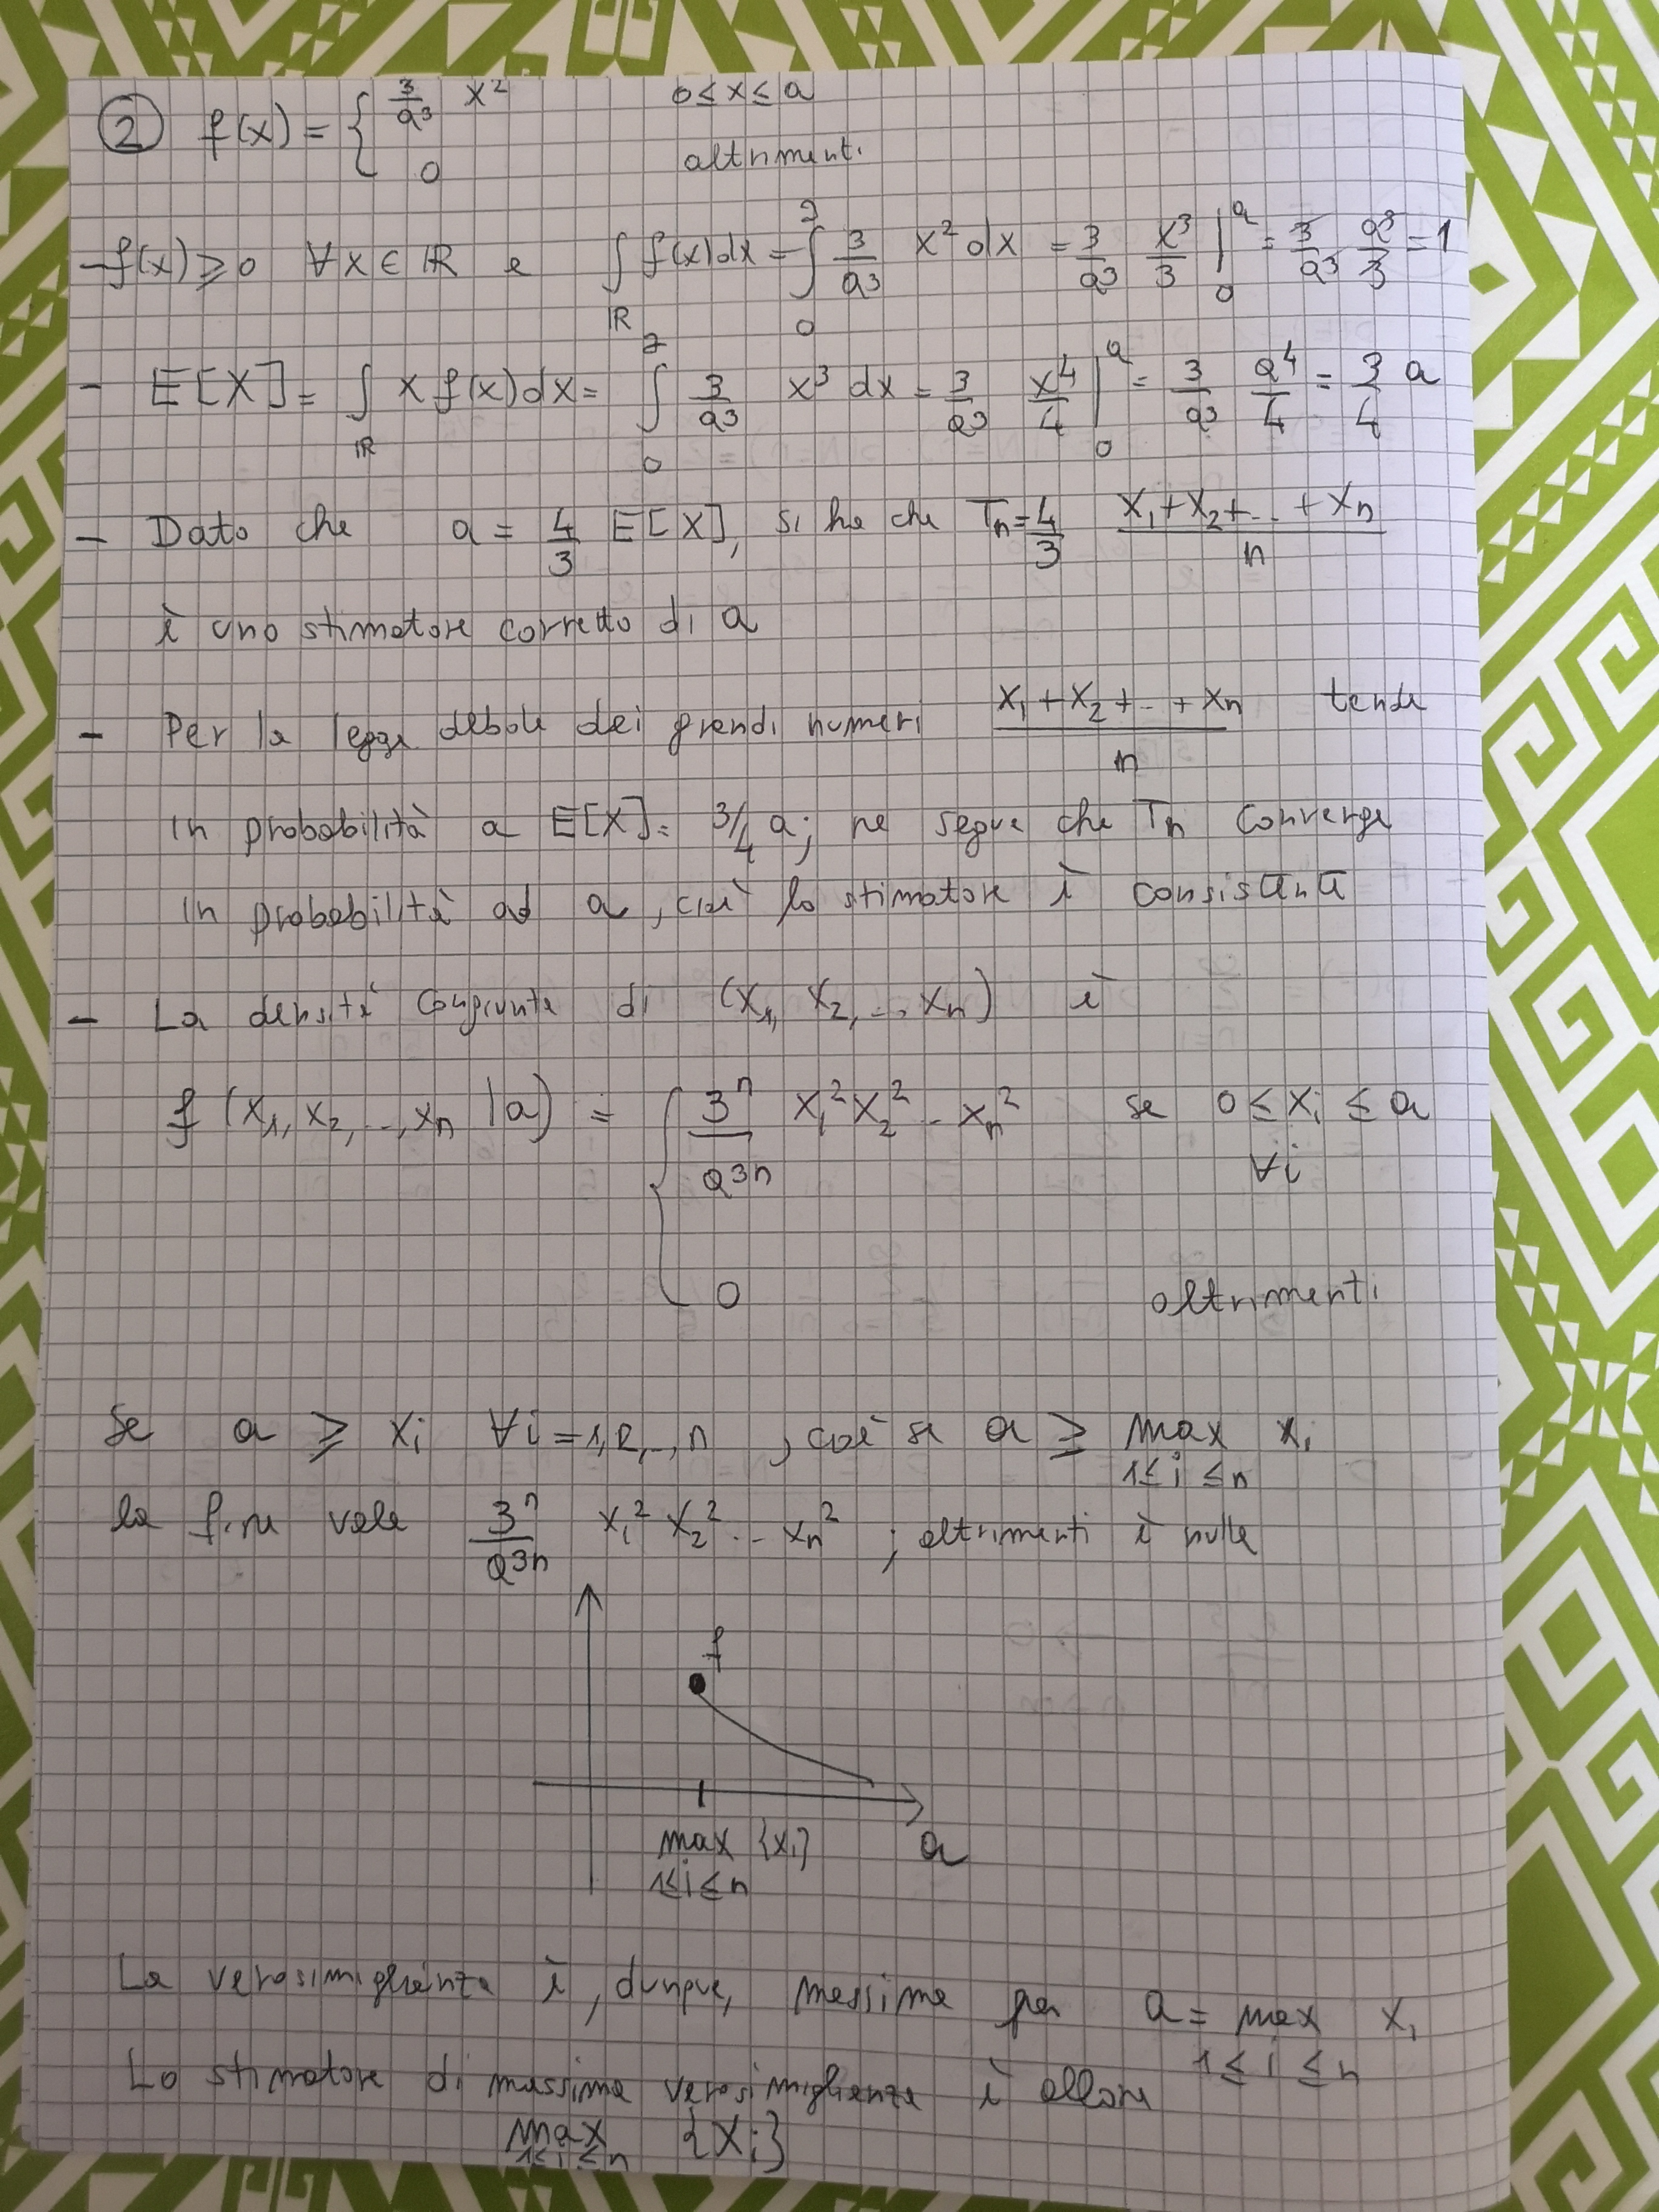 ② f(x) = { 3/a³ x² 0 ≤ x ≤ a
0 altrimenti
– f(x) ⩾ 0 ∀ x ∈ ℝ e ∫_ℝ f(x) dx = ∫_0^a 3/a³ x² dx = 3/a³ x³/3 |_0^a = 3/a³ a³/3 = 1
– E[X] = ∫_ℝ x f(x) dx = ∫_0^a 3/a³ x³ dx = 3/a³ x⁴/4 |_0^a = 3/a³ a⁴/4 = 3/4 a
– Dato che a = 4/3 E[X], si ha che Tn = 4/3 (X₁+X₂+...+Xn)/n
è uno stimatore corretto di a
– Per la legge debole dei grandi numeri (X₁+X₂+...+Xn)/n tende
in probabilità a E[X] = 3/4 a; ne segue che Tn converge
in probabilità ad a, cioè lo stimatore è consistente
– La densità congiunta di (X₁, X₂, ..., Xn) è
f(x₁, x₂, ..., xn | a) = { 3ⁿ/a³ⁿ x₁² x₂² ... xn² se 0 ≤ xi ≤ a ∀i
0 altrimenti
Se a ⩾ xi ∀i = 1,2,...,n, cioè se a ⩾ max_{1≤i≤n} xi
la f.ne vale 3ⁿ/a³ⁿ x₁² x₂² ... xn²; altrimenti è nulla
f
max {xi} a
1≤i≤n
La verosimiglianza è, dunque, massima per a = max xi
1≤i≤n
Lo stimatore di massima verosimiglianza è allora
max {Xi}
1≤i≤n